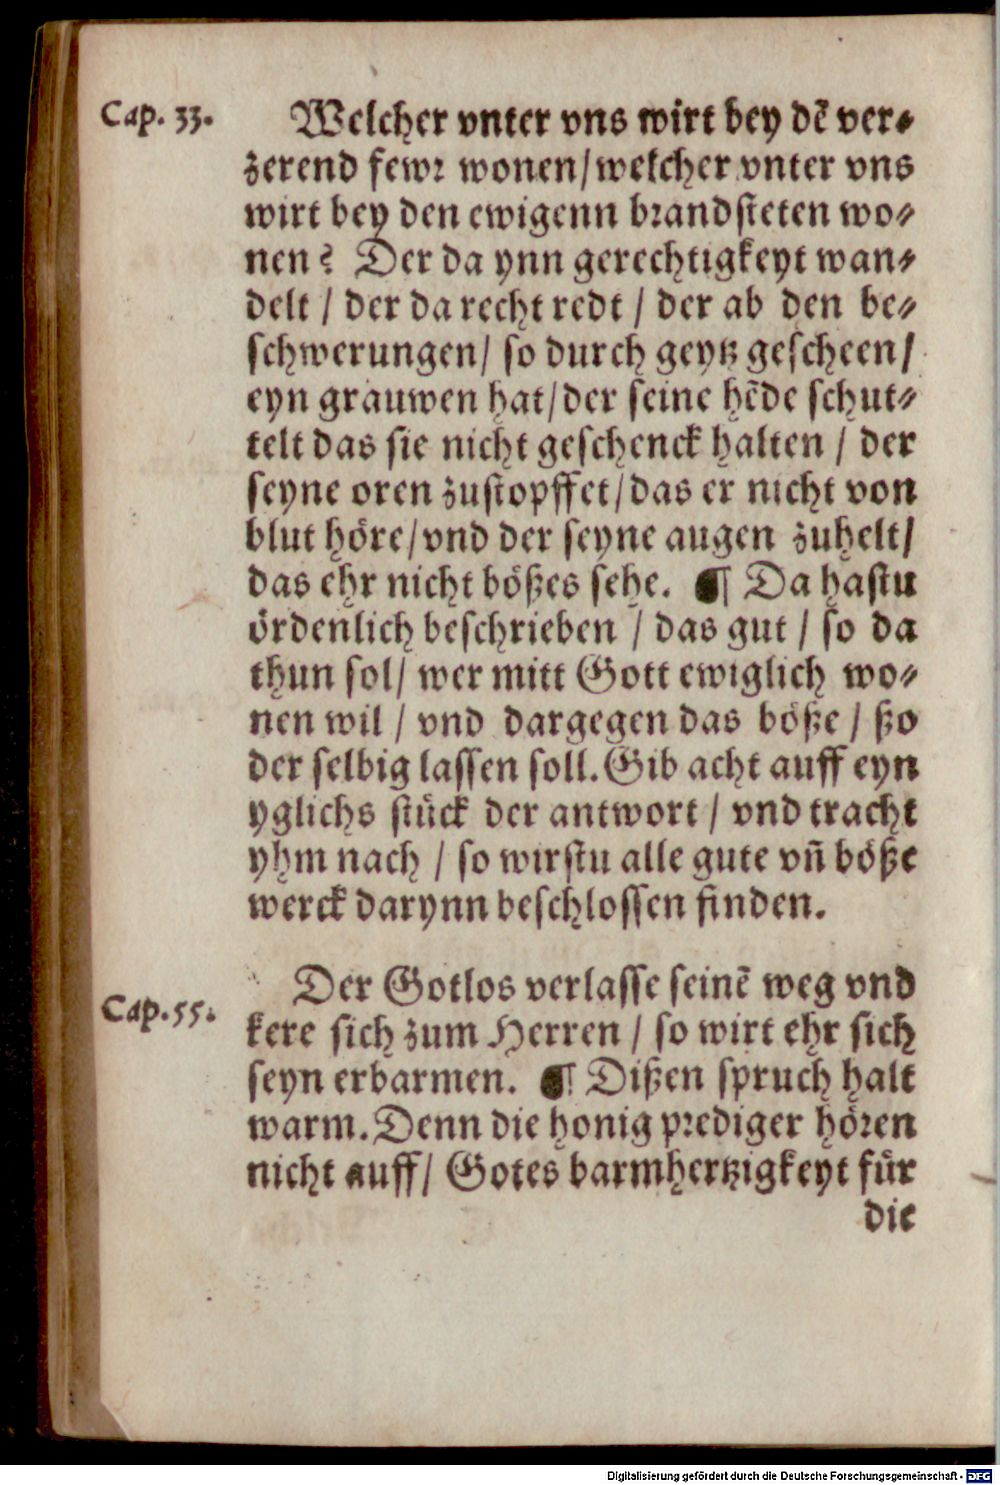 Cap. 33.
Welcher vnter vns wirt bey dē ver⸗
zerend fewr wonen/welcher vnter vns
wirt bey den ewigenn brandsteten wo⸗
nen? Der da ynn gerechtigkeyt wan⸗
delt / der da recht redt / der ab den be⸗
schwerungen/ so durch geytz gescheen/
eyn grauwen hat/der seine hēde schut⸗
telt das sie nicht geschenck halten / der
seyne oren zustopffet/das er nicht von
blut höre/vnd der seyne augen zuhelt/
das ehr nicht bößes sehe. ¶ Da hastu
ördenlich beschrieben / das gut / so da
thun sol/ wer mitt Gott ewiglich wo⸗
nen wil / vnd dargegen das böße / ßo
der selbig lassen soll. Gib acht auff eyn
yglichs stück der antwort / vnd tracht
yhm nach / so wirstu alle gute vñ böße
werck darynn beschlossen finden.
Cap. 55.
Der Gotlos verlasse seinē weg vnd
kere sich zum Herren / so wirt ehr sich
seyn erbarmen. ¶ Dißen spruch halt
warm. Denn die honig prediger hören
nicht auff/ Gotes barmhertzigkeyt für
die
Digitalisierung gefördert durch die Deutsche Forschungsgemeinschaft - DFG